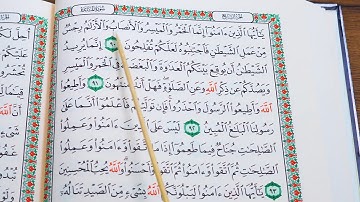 يَٰٓأَيُّهَا ٱلَّذِينَ ءَامَنُوٓا۟ إِنَّمَا ٱلْخَمْرُ وَٱلْمَيْسِرُ وَٱلْأَنصَابُ وَٱلْأَزْلَٰمُ رِجْسٌ
مِّنْ عَمَلِ ٱلشَّيْطَٰنِ فَٱجْتَنِبُوهُ لَعَلَّكُمْ تُفْلِحُونَ ٩٠ إِنَّمَا يُرِيدُ
ٱلشَّيْطَٰنُ أَن يُوقِعَ بَيْنَكُمُ ٱلْعَدَٰوَةَ وَٱلْبَغْضَآءَ فِى ٱلْخَمْرِ وَٱلْمَيْسِرِ
وَيَصُدَّكُمْ عَن ذِكْرِ ٱللَّهِ وَعَنِ ٱلصَّلَوٰةِ فَهَلْ أَنتُم مُّنتَهُونَ ٩١ وَأَطِيعُوا۟
ٱللَّهَ وَأَطِيعُوا۟ ٱلرَّسُولَ وَٱحْذَرُوا۟ فَإِن تَوَلَّيْتُمْ فَٱعْلَمُوٓا۟ أَنَّمَا عَلَىٰ
رَسُولِنَا ٱلْبَلَٰغُ ٱلْمُبِينُ ٩٢ لَيْسَ عَلَى ٱلَّذِينَ ءَامَنُوا۟ وَعَمِلُوا۟
ٱلصَّٰلِحَٰتِ جُنَاحٌ فِيمَا طَعِمُوٓا۟ إِذَا مَا ٱتَّقَوا۟ وَّءَامَنُوا۟ وَعَمِلُوا۟
ٱلصَّٰلِحَٰتِ ثُمَّ ٱتَّقَوا۟ وَّءَامَنُوا۟ ثُمَّ ٱتَّقَوا۟ وَّأَحْسَنُوا۟ وَٱللَّهُ يُحِبُّ ٱلْمُحْسِنِينَ
٩٣ يَٰٓأَيُّهَا ٱلَّذِينَ ءَامَنُوا۟ لَيَبْلُوَنَّكُمُ ٱللَّهُ بِشَىْءٍ مِّنَ ٱلصَّيْدِ تَنَالُهُۥٓ